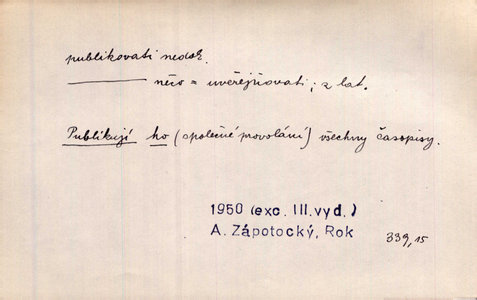 publikovati nedok.
——— něco = uveřejňovati; z lat.
Publikují ho (společné provolání) všechny časopisy.
1950 (exc. III. vyd.)
A. Zápotocký, Rok
339,15